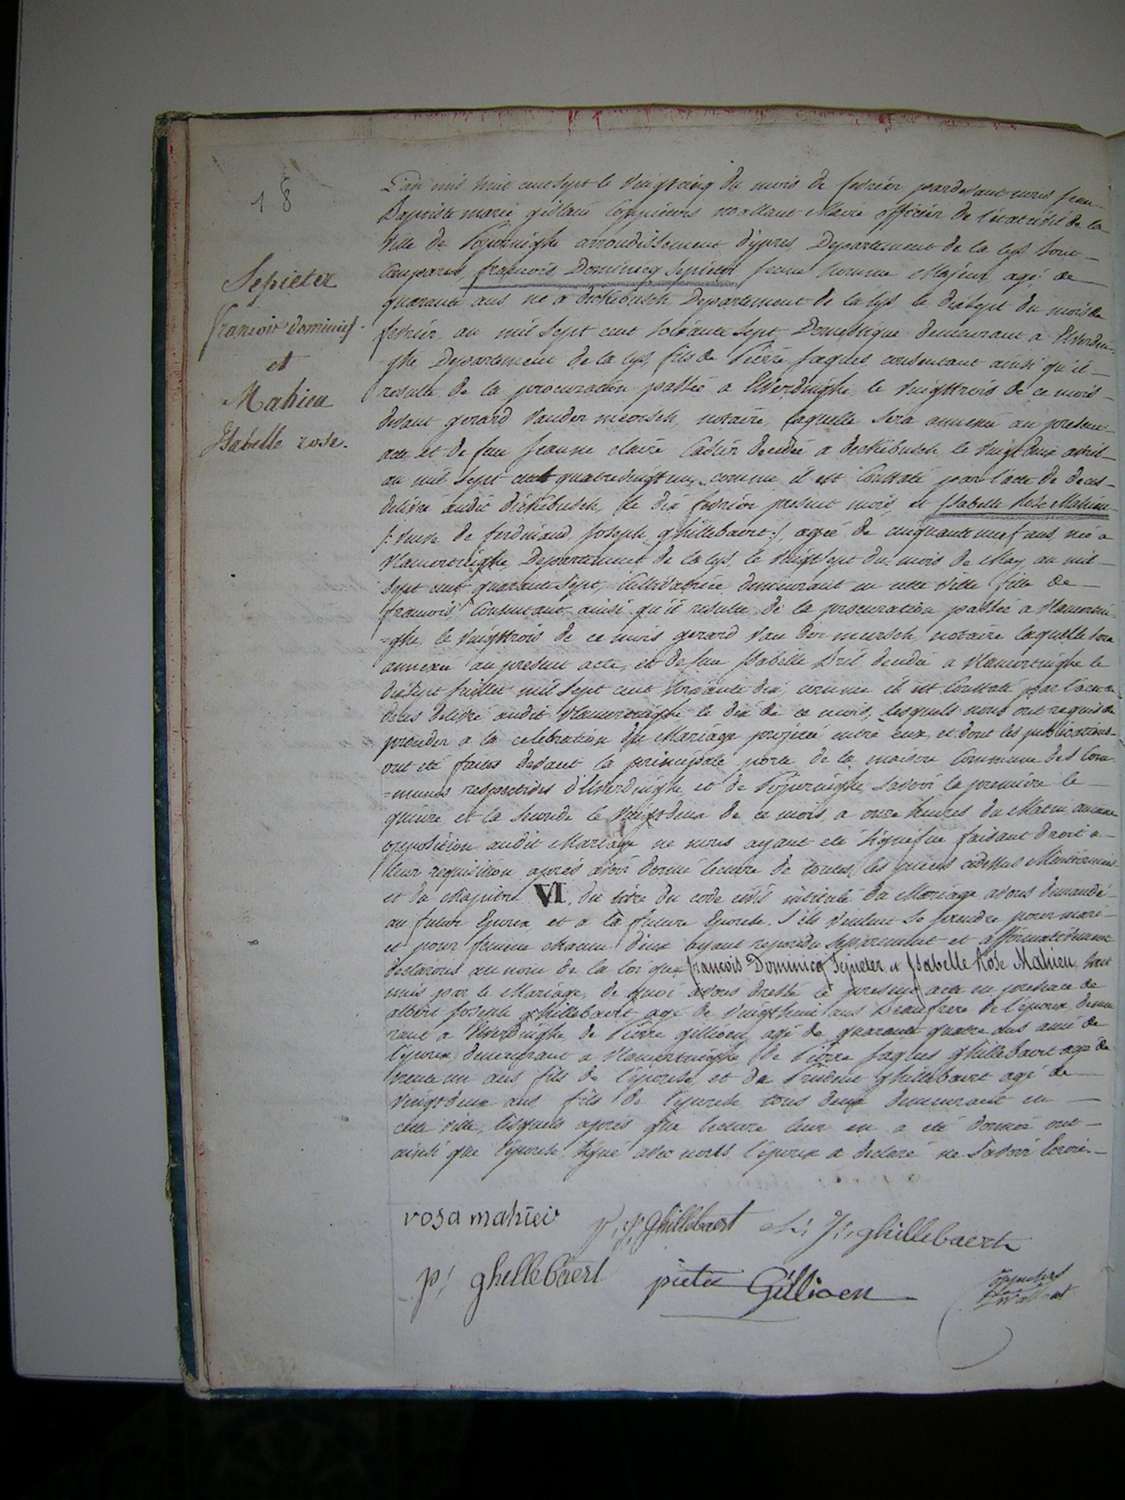 18
Sepieter
françois dominicq
et
Mahieu
Isabelle rose.
L'an mil huit cent sept le vingtcinq du mois de fevrier pardevant nous Jean
Baptiste marie Coppieters Maire officier de l'état civil de la
ville de Poperinghe arrondissement d'ypres Departement de la Lys sont
Comparus françois Dominicq Sepieter jeune homme Majeur agé de
quarante ans né a dickebusch Departement de la Lys le dixsept du mois de
fevrier an mil sept cent soixante sept Domestique demeurant a Elverdin-
-ghe Departement de la Lys, fils de Pierre Jaques consentant ainsi qu'il
resulte de la procuration passée a Elverdinghe le vingttrois de ce mois
devant gerard Vander meersch notaire laquelle sera annexée au present
acte et de feu Jeanne claire decedée a dickebusch le avril
an mil sept cent quatrevingt comme il est Constaté par l'acte de deces
delivré audit dickebusch le dix fevrier present mois, et Isabelle Rose Mahieu
/: veuve de ferdinand Joseph ghillebaert :/ agée de cinquante neuf ans née a
Vlamertinghe Departement de la Lys le vingtsept du mois de May an mil
sept cent quarante sept, Cultivatrice demeurant en cette ville fille de
françois Consentant ainsi qu'il resulte de la procuration passée a Vlamertin-
-ghe le vingttrois de ce mois gerard Van der meersch notaire laquelle sera
annexée au present acte, et de feu Isabelle decedée a Vlamertinghe le
dixsept Juillet mil sept cent soixante dix comme il est Constaté par l'acte de
deces delivré audit Vlamertinghe le dix de ce mois, lesquels nous ont requis de
proceder a la celebration du Mariage projetté entre eux et dont les publications
ont été faites devant la principale porte de la maison Commune des Com-
-munes respectives d'Elverdinghe et de Poperinghe savoir la premiere le
quinze et la seconde le vingtdeux de ce mois a onze heures du Matin aucune
opposition audit Mariage ne nous ayant eté signifiée faisant droit a
leur requisition après avoir donné lecture de toutes les pieces cidessus Mentionnées
et du chapitre VI du titre du code civil intitulé du Mariage avons demandé
au futur Epoux et a la future Epouse s'ils veulent se prendre pour mari
et pour femme chacun d'eux ayant repondu separement et affirmativement
declarons au nom de la loi que françois Dominicq Sepieter et Isabelle Rose Mahieu sont
unis par le Mariage, de quoi avons dressé le present acte en presence de
albert Joseph ghillebaert agé de ans Beaufrere de l'epoux demeu
rant a Elverdinghe de Pierre gillioen agé de quarante quatre ans ami de
l'epoux demeurant a Vlamertinghe de Pierre Jaques ghillebaert agé de
trente un ans fils de l'epouse et de Prudent ghillebaert agé de
vingtdeux ans fils de l'epouse tous deux demeurant en
cette ville, lesquels apres que lecture leur en a été donnée ont
ainsi que l'epouse signé avec nous l'epoux a declaré ne savoir écrire.
rosa mahieu P, J, Ghillebaert A, J, ghillebaert
p, ghellebaert pieter Gillioen Coppieters